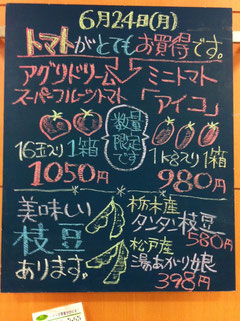 6月24日(月)
トマトがとてもお買得です。
アグリドリーム
スーパーフルーツトマト
16玉入り1箱
1050円
ミニトマト
「アイコ」
1kg入り1箱
980円
数量
限定
です
美味しい
枝豆
あります。
栃木産
タンタン枝豆
580円
松戸産
湯あがり娘
398円